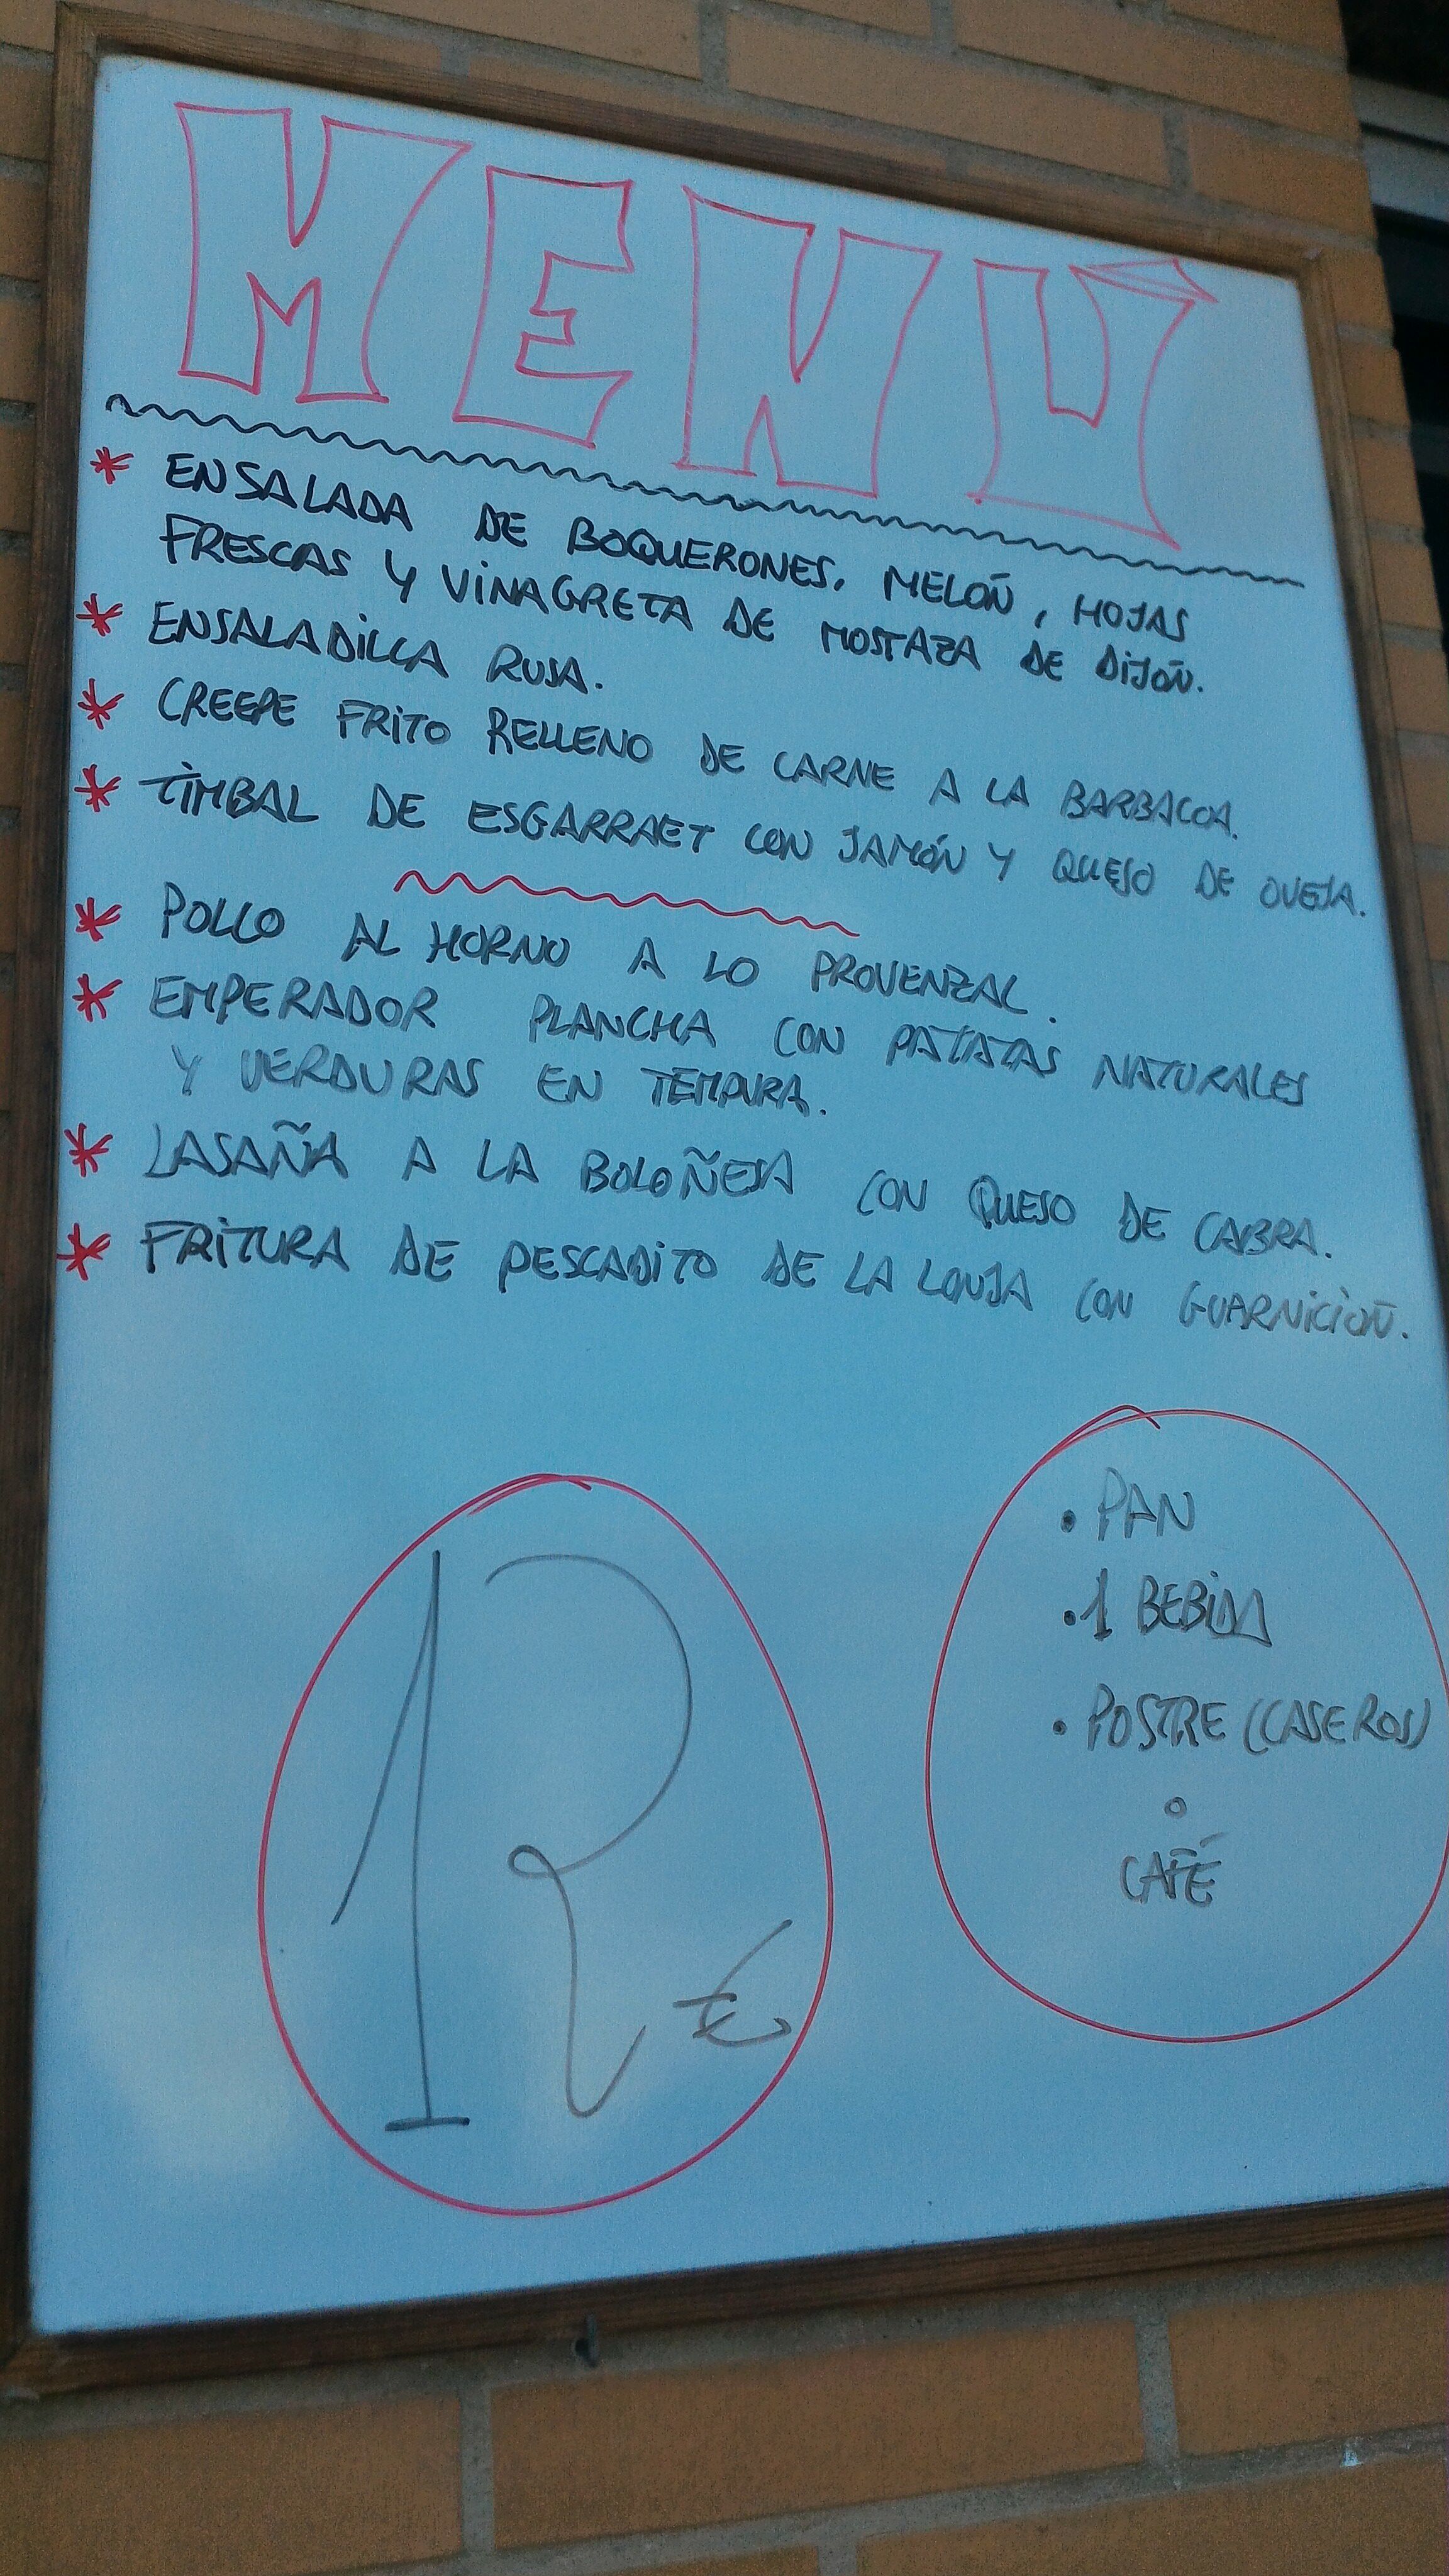 MENÚ
* ENSALADA DE BOQUERONES, MELÓN, HOJAS
FRESCAS Y VINAGRETA DE MOSTAZA DE DIJÓN.
* ENSALADILLA RUSA.
* CREEPE FRITO RELLENO DE CARNE A LA BARBACOA.
* TIMBAL DE ESGARRAET CON JAMÓN Y QUESO DE OVEJA.
* POLLO AL HORNO A LO PROVENZAL.
* EMPERADOR PLANCHA CON PATATAS NATURALES
Y VERDURAS EN TEMPURA.
* LASAÑA A LA BOLOÑESA CON QUESO DE CABRA.
* FRITURA DE PESCADITO DE LA LONJA CON GUARNICIÓN.
12 €
• PAN
• 1 BEBIDA
• POSTRE (CASEROS)
o
CAFÉ